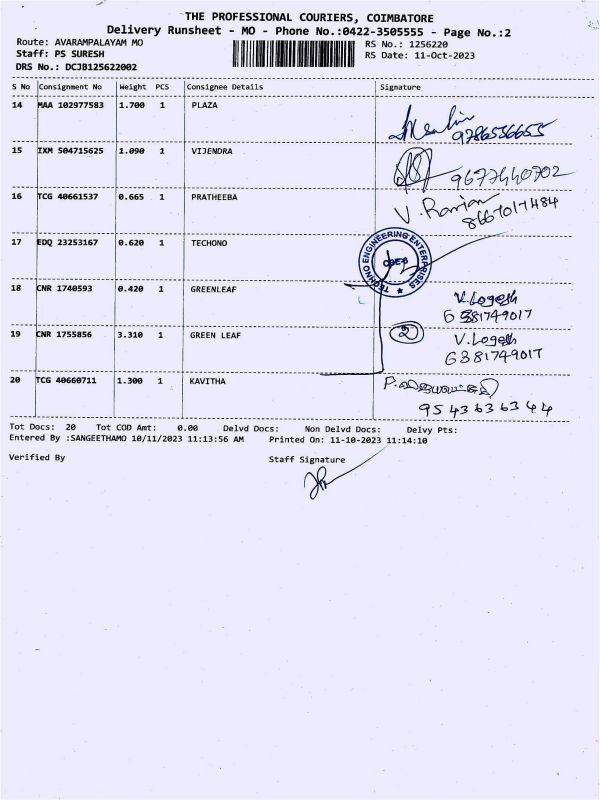 THE PROFESSIONAL COURIERS, COIMBATORE
Delivery Runsheet - MO - Phone No.:0422-3505555 - Page No.:2
Route: AVARAMPALAYAM MO RS No.: 1256220
Staff: PS SURESH RS Date: 11-Oct-2023
DRS No.: DCJB125622002
S No Consignment No Weight PCS Consignee Details Signature
14 MAA 102977583 1.700 1 PLAZA
9786536655
15 IXM 504715625 1.090 1 VIJENDRA
9677440702
16 TCG 40661537 0.665 1 PRATHEEBA V. Ranjan
8667017484
17 EDQ 23253167 0.620 1 TECHONO
TECHNO ENGINEERING ENTERPRISES
18 CNR 1740593 0.420 1 GREENLEAF V.Logesh
6381749017
19 CNR 1755856 3.310 1 GREEN LEAF 2 V.Logesh
6381749017
20 TCG 40660711 1.300 1 KAVITHA
9543636344
Tot Docs: 20 Tot COD Amt: 0.00 Delvd Docs: Non Delvd Docs: Delvy Pts:
Entered By :SANGEETHAMO 10/11/2023 11:13:56 AM Printed On: 11-10-2023 11:14:10
Verified By Staff Signature